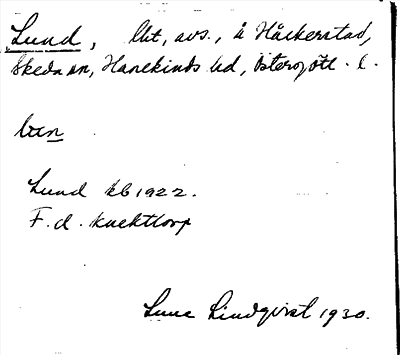 Lund, lht, avs., å Håckerstad,
Skeda sn, Hanekinds hd, Östergötl. l.
lun
Lund kb 1922.
F.d. knekttorp
Sune Lindqvist 1930.